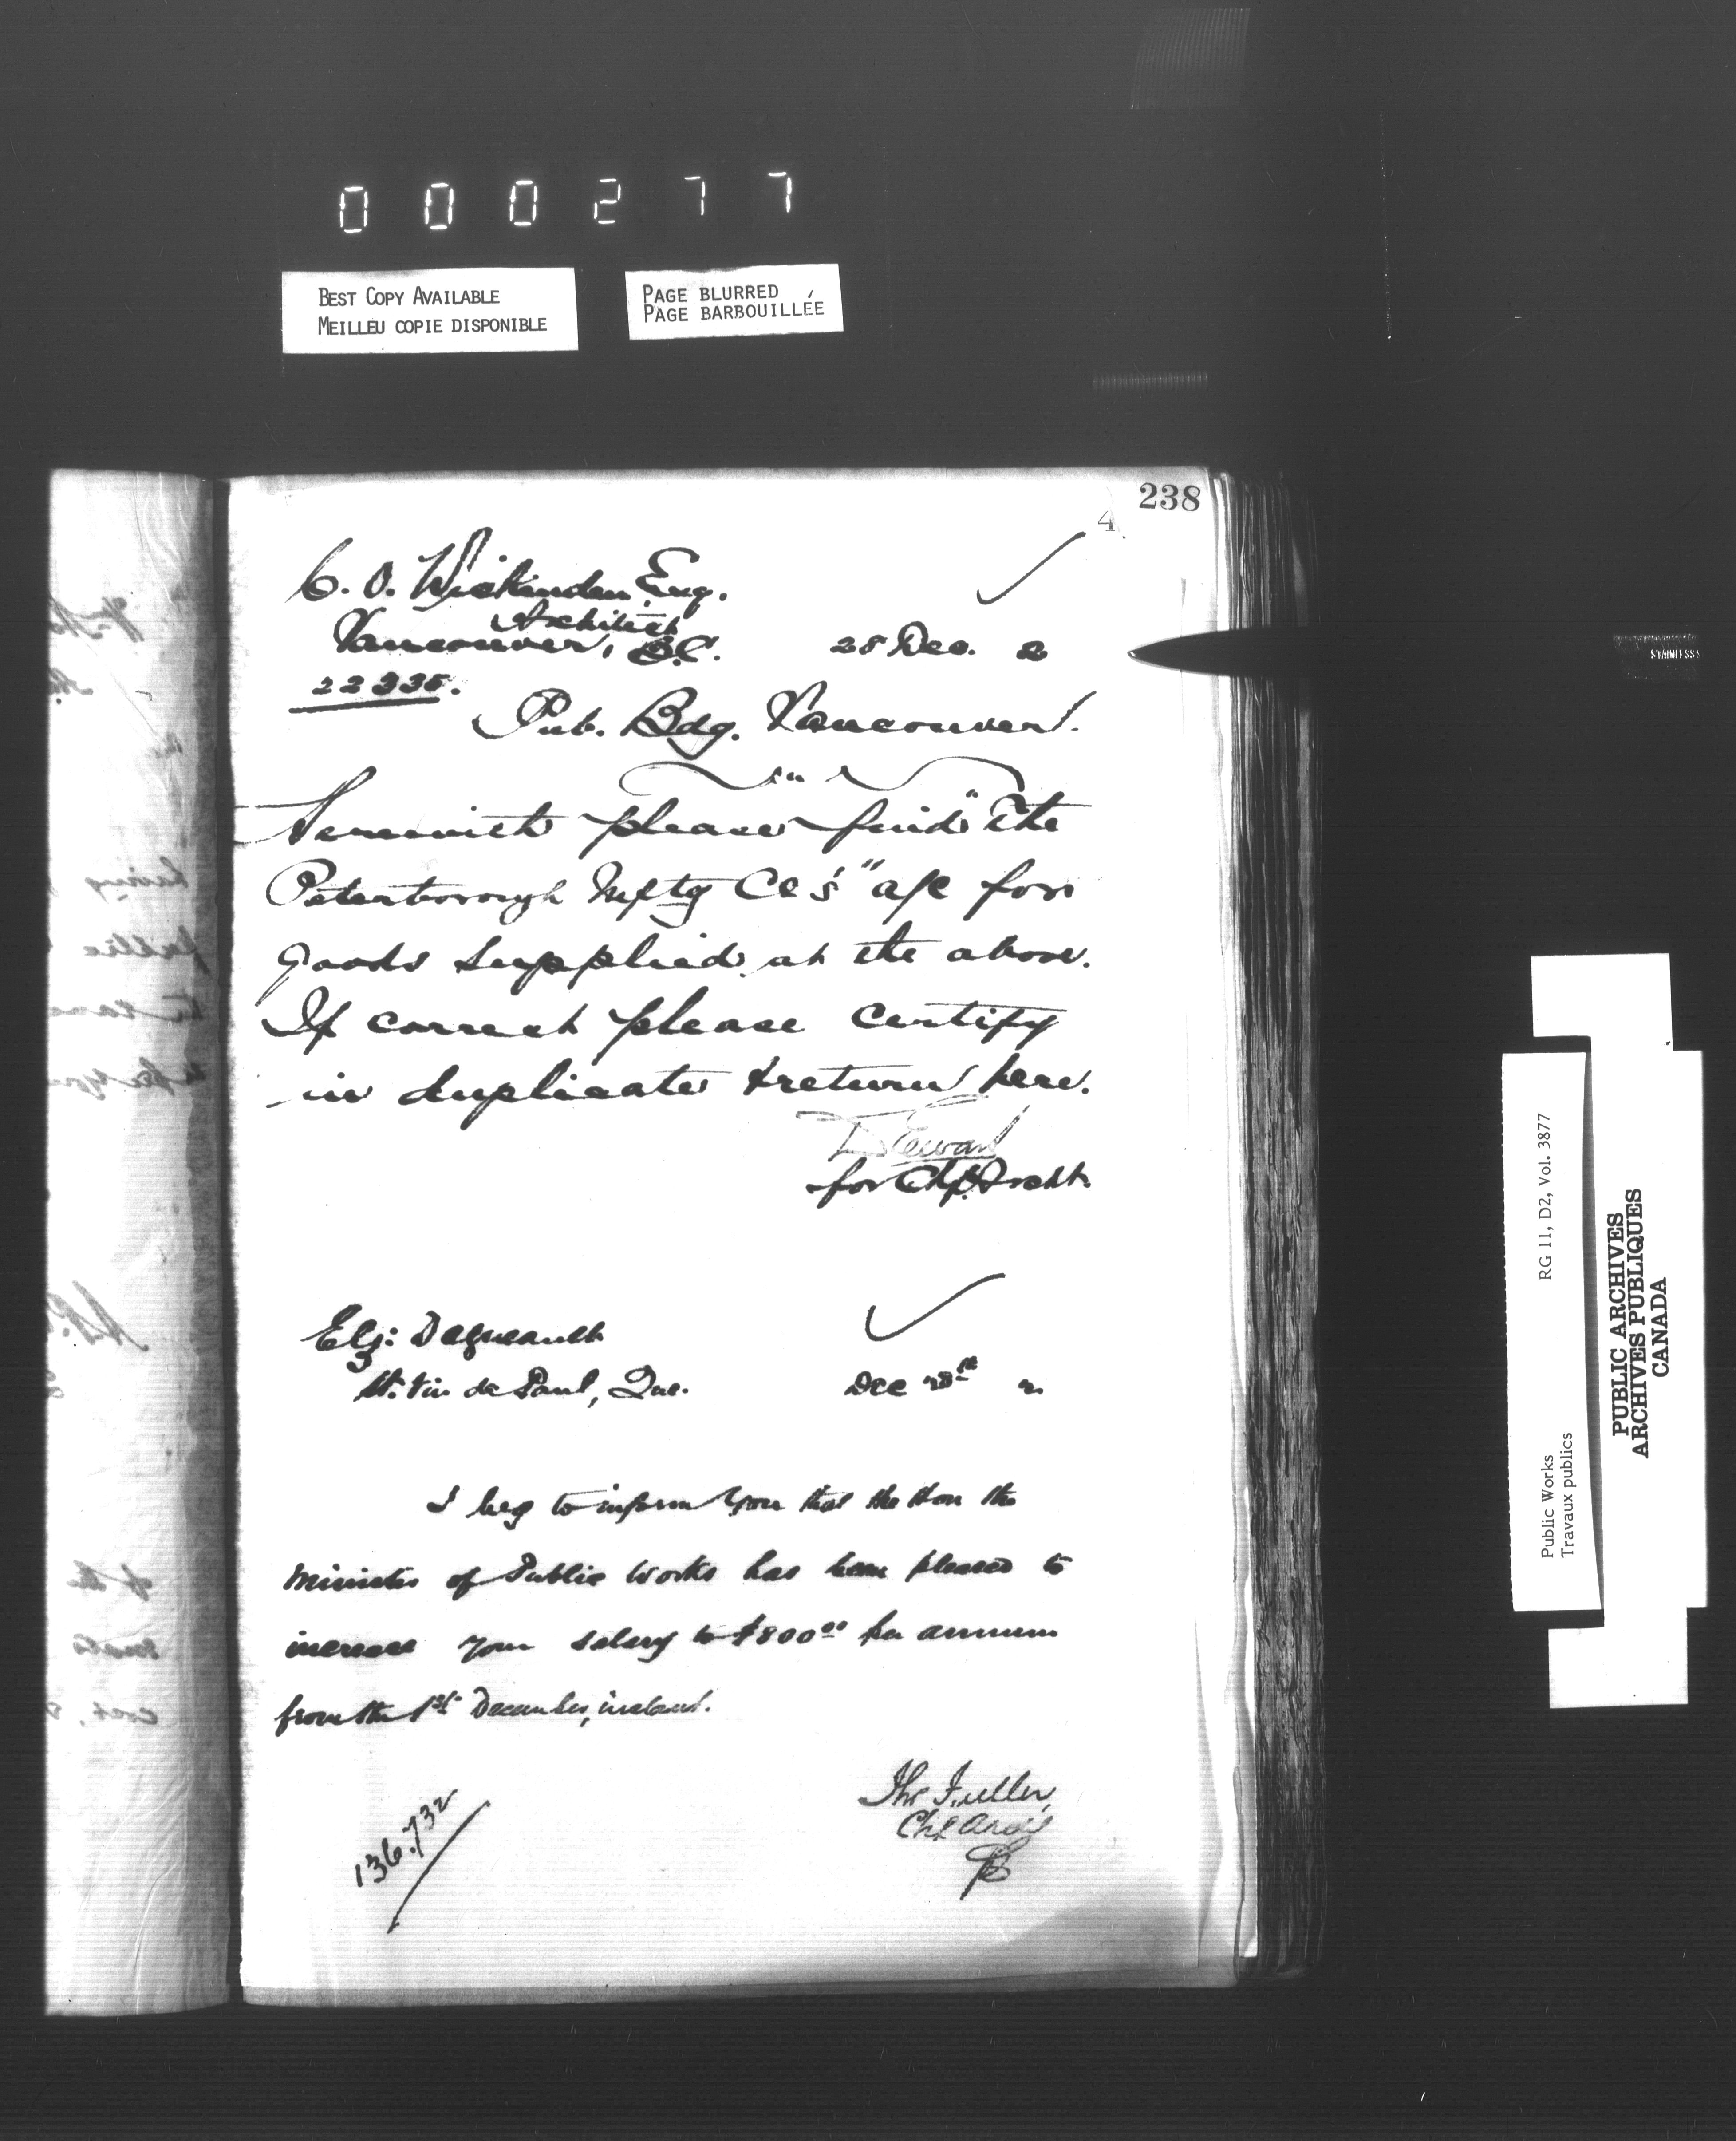 000277
BEST COPY AVAILABLE
MEILLEU COPIE DISPONIBLE
PAGE BLURRED
PAGE BARBOUILLÉE
238
4
C. O. Wickenden, Esq.
Architect
Vancouver, B.C. 28 Dec. 2
22335.
Pub. Bdg. Vancouver.
Sir
Herewith please find "The
Peterborough Mfg Co's" a/c for
goods supplied at the above.
If correct please certify
in duplicate & return here.
D Ewart
for Chf. Archt.
Elz: Dagneault
St. Vin de Paul, Que. Dec 28th 2
I beg to inform you that the Hon the
Minister of Public Works has been pleased to
increase your salary to $800.00 per annum
from the 1st December, instant.
Thos Fuller,
Chf Arch
136.732
Public Works
Travaux publics
RG 11, D2, Vol. 3877
PUBLIC ARCHIVES
ARCHIVES PUBLIQUES
CANADA
STAINLESS